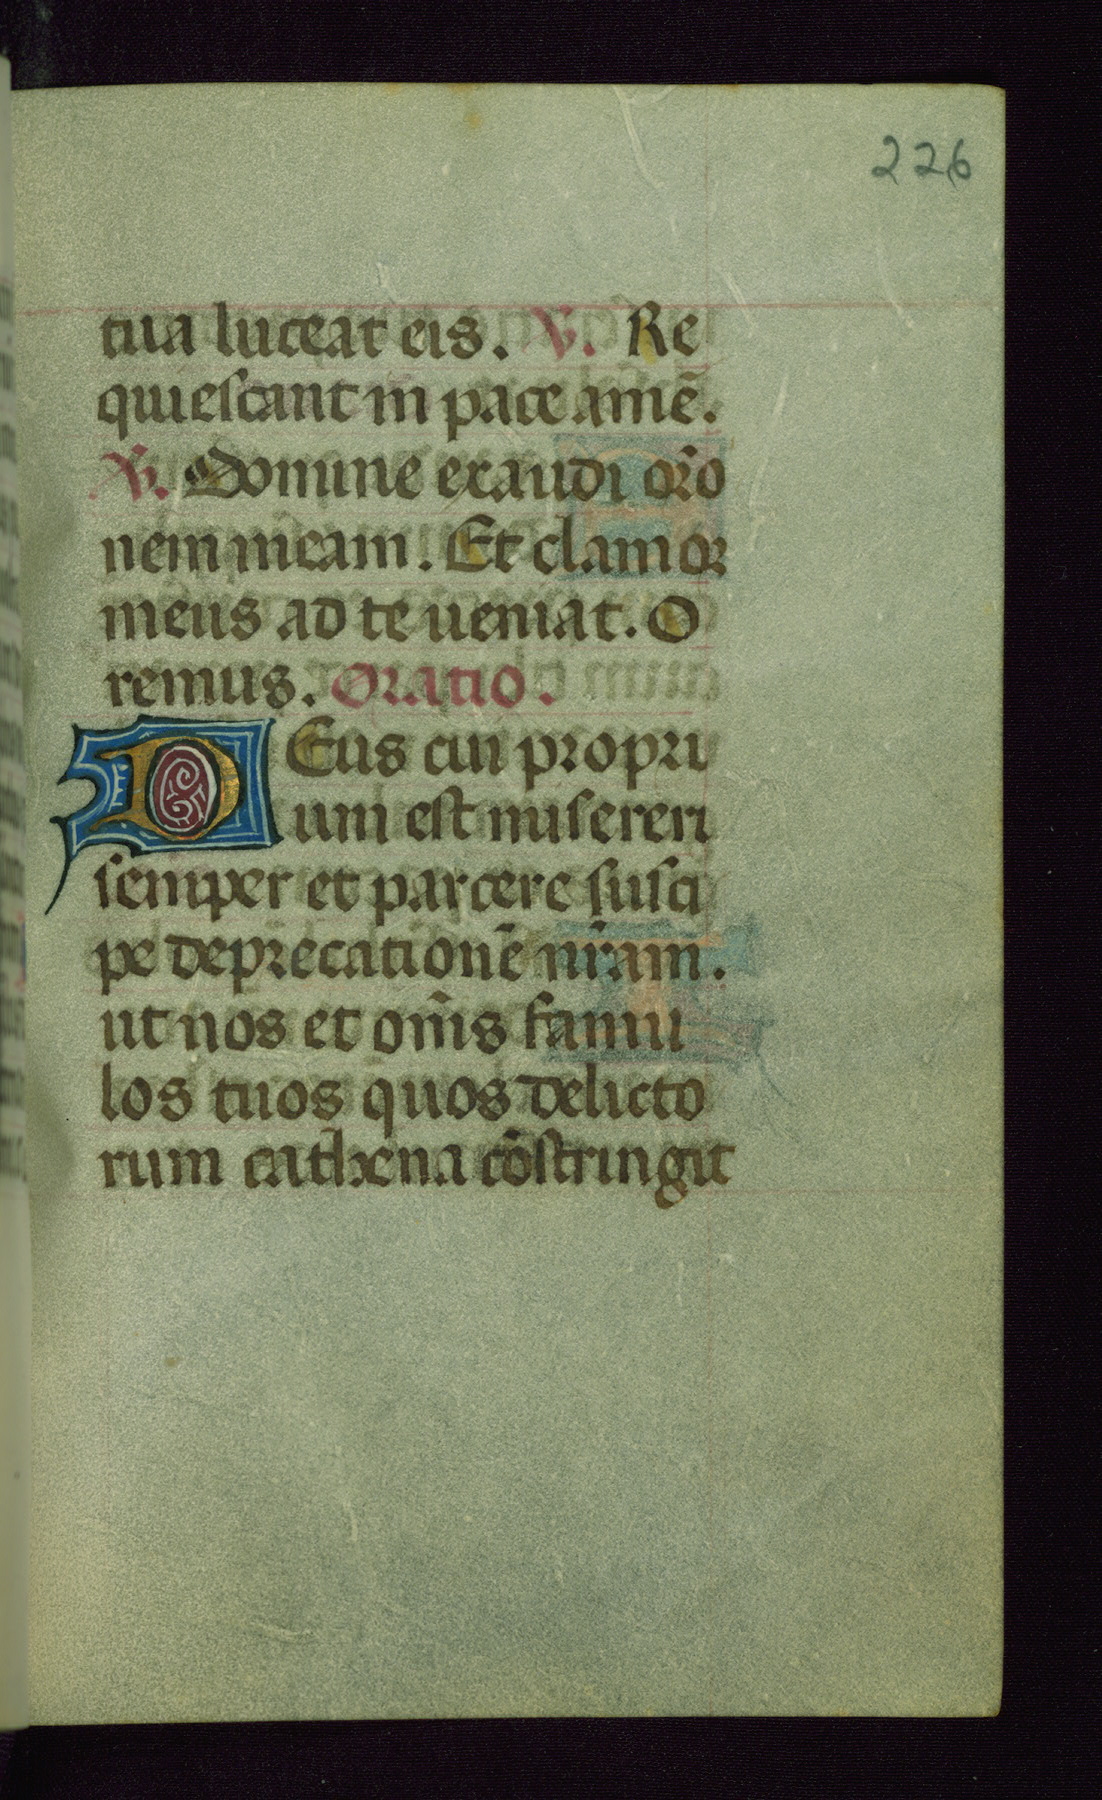 226
tua luceat eis. V. Re
quiescant in pace amē.
V. Domine exaudi or̄o
nem meam. Et clamor
meus ad te ueniat. O
remus. Oratio.
DEus cui propri
um est misereri
semper et parcere susci
pe deprecationē nr̄am.
ut nos et om̄s famu
los tuos quos delicto
rum cathena cōstringit